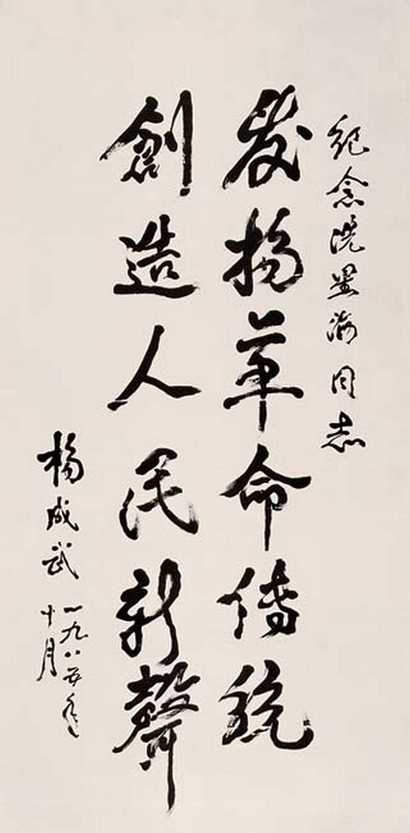 纪念冼星海同志
发扬革命傳統
創造人民新聲
楊成武
一九八五年
十月